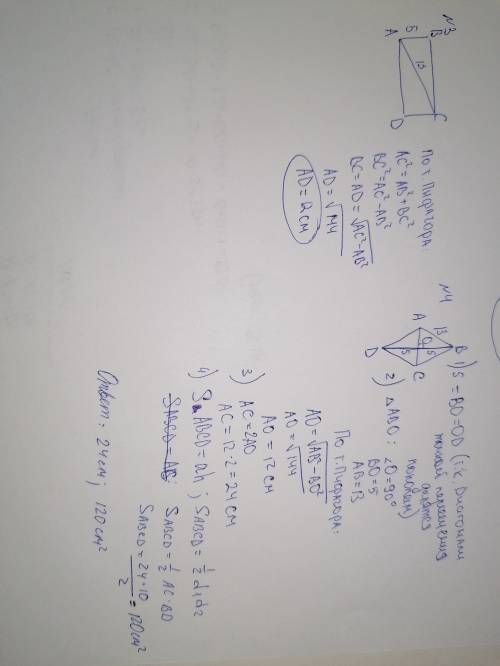 №3
B
5
A
13
C
D
По т. Пифагора:
AC²=AB²+BC²
BC²=AC²-AB²
BC=AD=√AC²-AB²
AD=√144
AD=12см
№4
B
13
A
O
5
5
C
D
1) 5=BO=OD (т.к. Диагонали
точкой пересечения
делятся
пополам)
2) △ABO: ∠O=90°
BO=5
AB=13
По т. Пифагора:
AO=√AB²-BO²
AO=√144
AO=12см
3) AC=2AO
AC=12·2=24см
4) SABCD=ah; SABCD=½d₁d₂
SABCD= SABCD=½AC·BD
SABCD=24·10/2=120см²
Ответ: 24см; 120см²